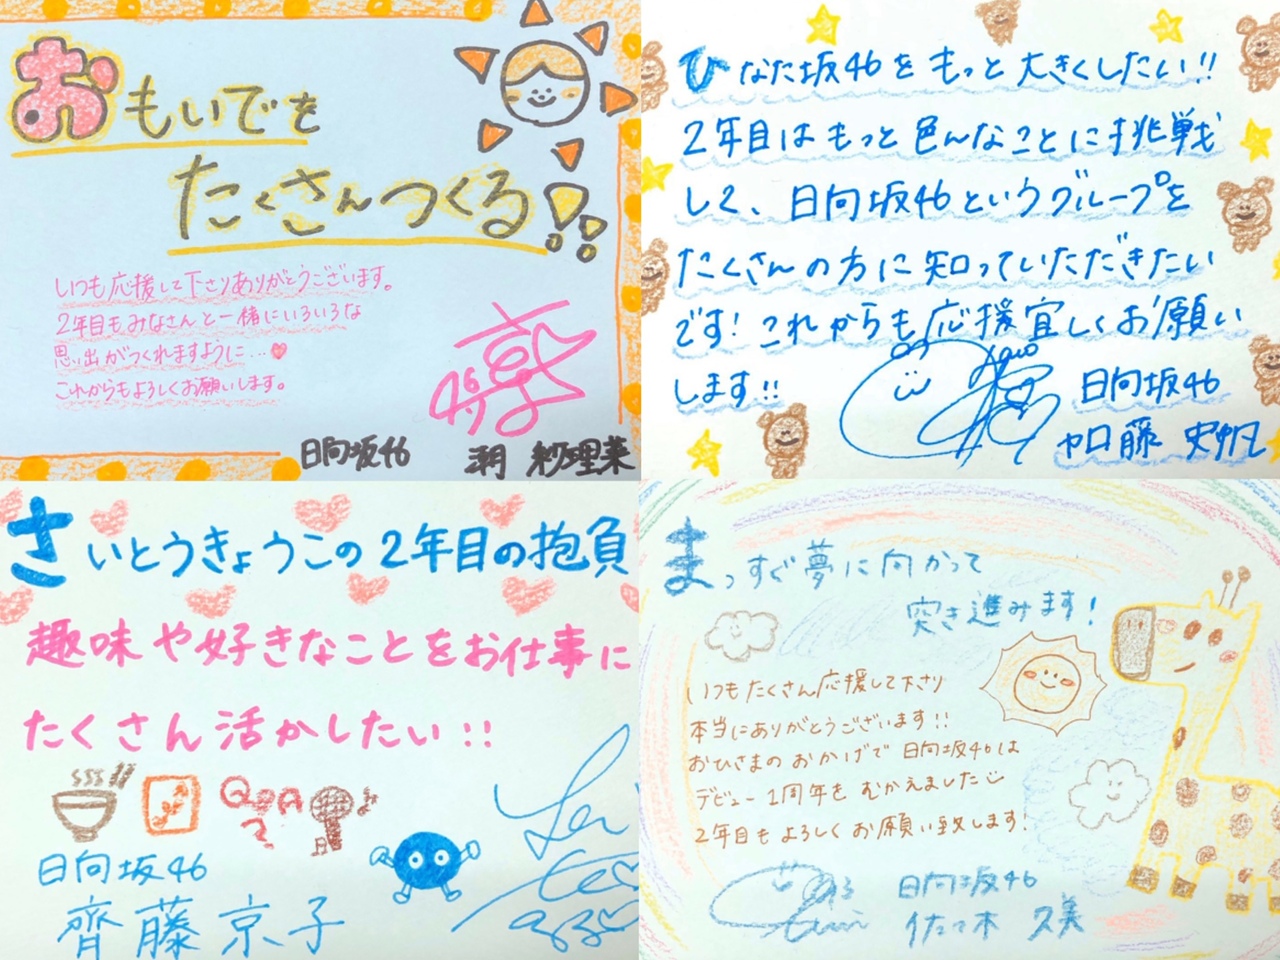 おもいでを
たくさんつくる!!
いつも応援して下さりありがとうございます。
2年目もみなさんと一緒にいろいろな
思い出がつくれますように…
これからもよろしくお願いします。
日向坂46 潮 紗理菜
ひなた坂46をもっと大きくしたい!!
2年目はもっと色んなことに挑戦
して、日向坂46というグループを
たくさんの方に知っていただきたい
です!これからも応援宜しくお願い
します!!
日向坂46
加藤 史帆
さいとうきょうこの2年目の抱負
趣味や好きなことをお仕事に
たくさん活かしたい!!
日向坂46
齊藤 京子
まっすぐ夢に向かって
突き進みます!
いつもたくさん応援して下さり
本当にありがとうございます!!
おひさまのおかげで日向坂46は
デビュー1周年をむかえました
2年目もよろしくお願い致します!
日向坂46
佐々木 久美